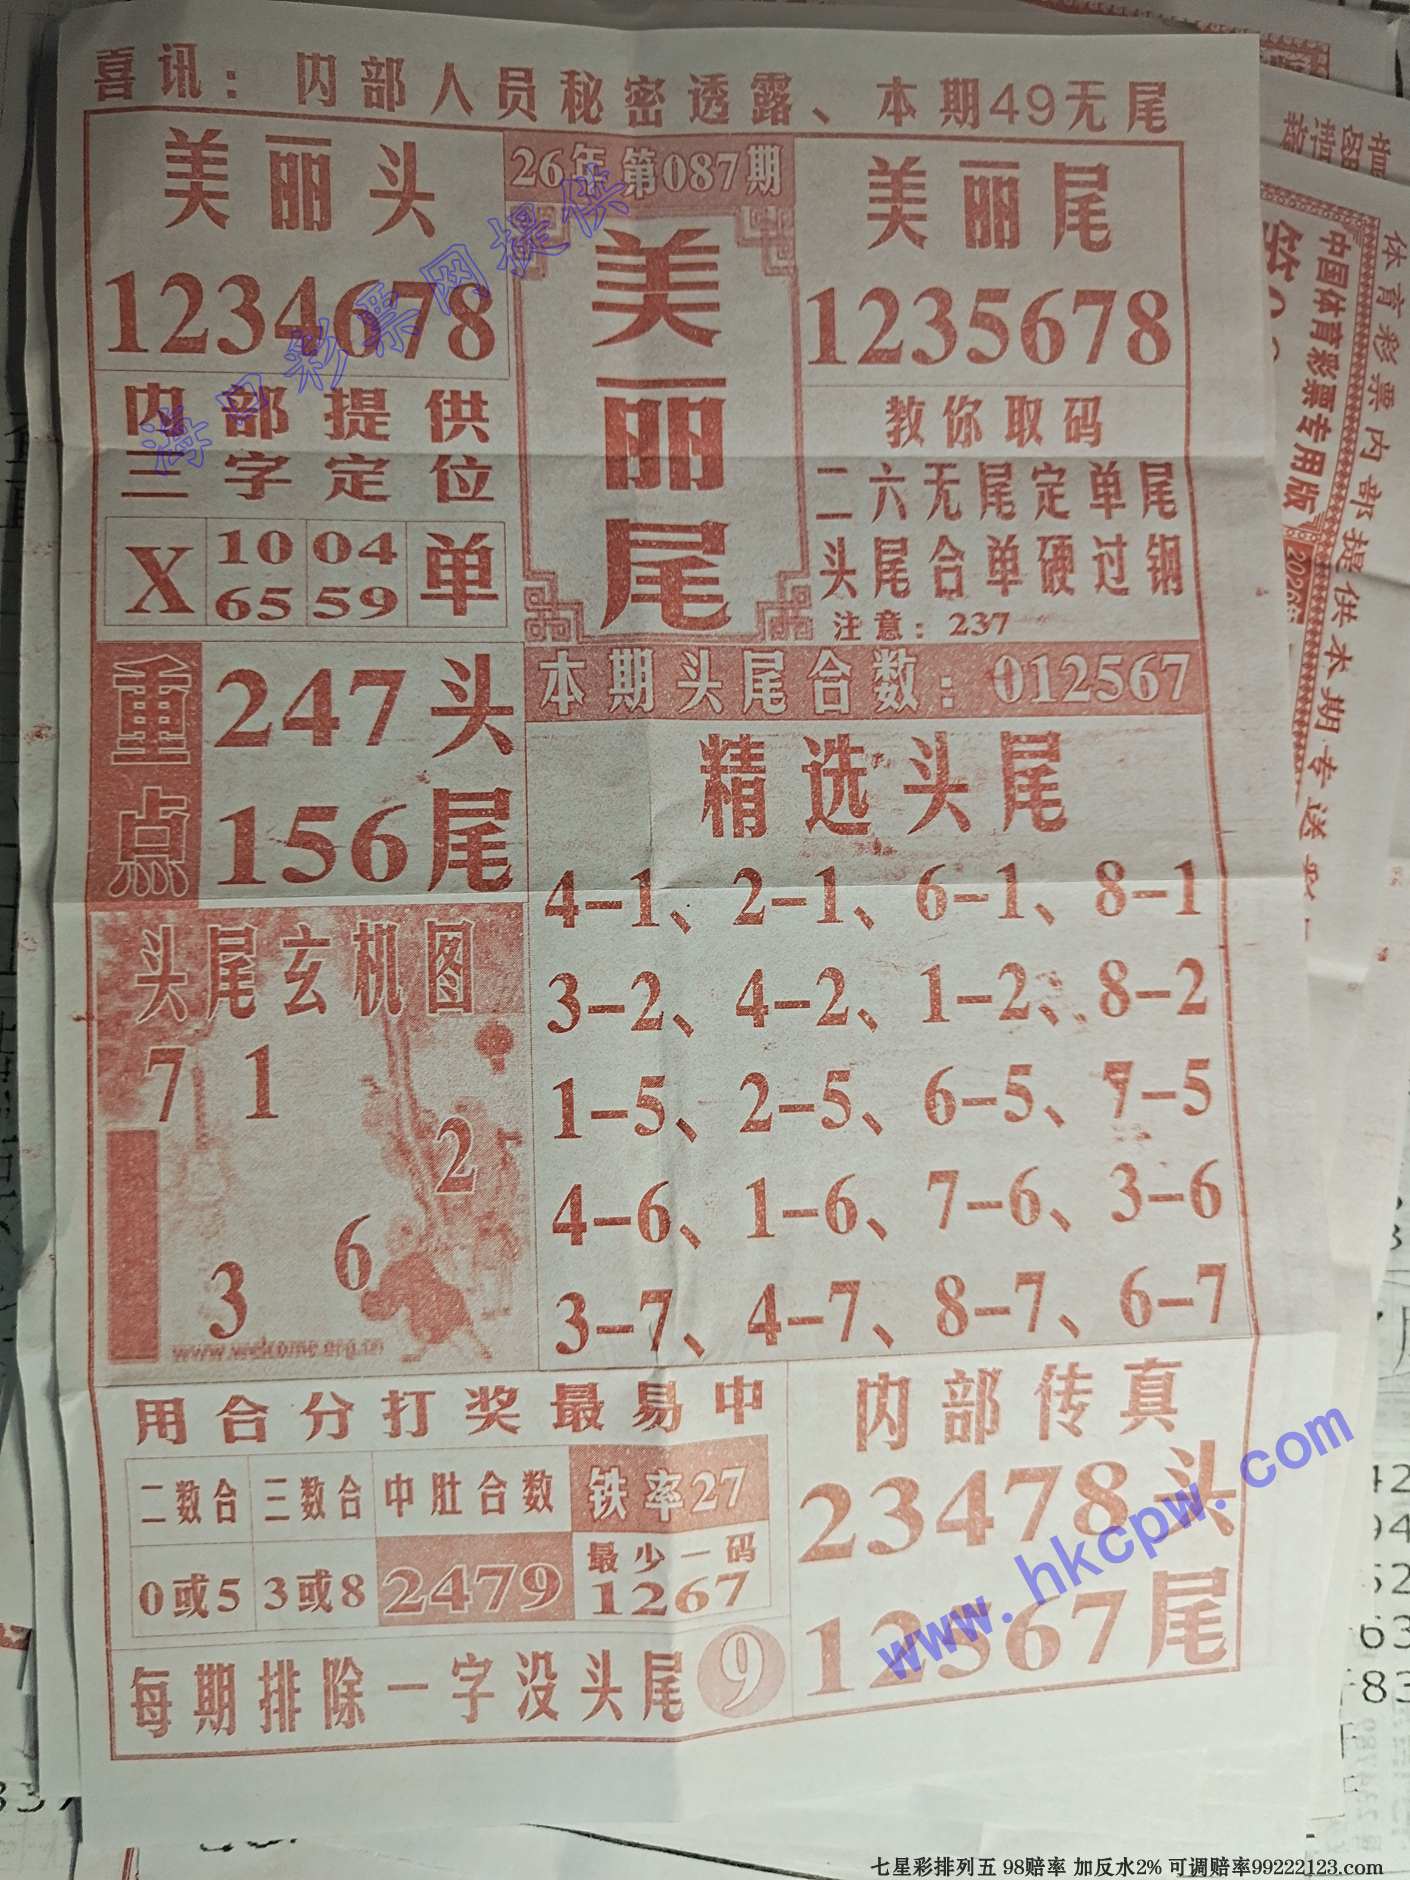 喜讯：内部人员秘密透露、本期49无尾
美丽头
1234678
26年第087期
美丽尾
美丽尾
1235678
内部提供
三字定位
X 10 04 单
65 59
教你取码
二六无尾定单尾
头尾合单硬过钢
注意：237
重点
247头
156尾
本期头尾合数：012567
精选头尾
4-1、2-1、6-1、8-1
3-2、4-2、1-2、8-2
1-5、2-5、6-5、7-5
4-6、1-6、7-6、3-6
3-7、4-7、8-7、6-7
头尾玄机图
7 1
2
6
3
www.welcome.org.cn
用合分打奖最易中
二数合 三数合 中肚合数 铁率27
0或5 3或8 2479 最少一码
1267
每期排除一字没头尾 9
内部传真
23478头
12567尾
海口彩票网提供
www.hkcpw.com
体育彩票内部提供本期专送
中国体育彩票专用版
七星彩排列五 98赔率 加反水2% 可调赔率99222123.com